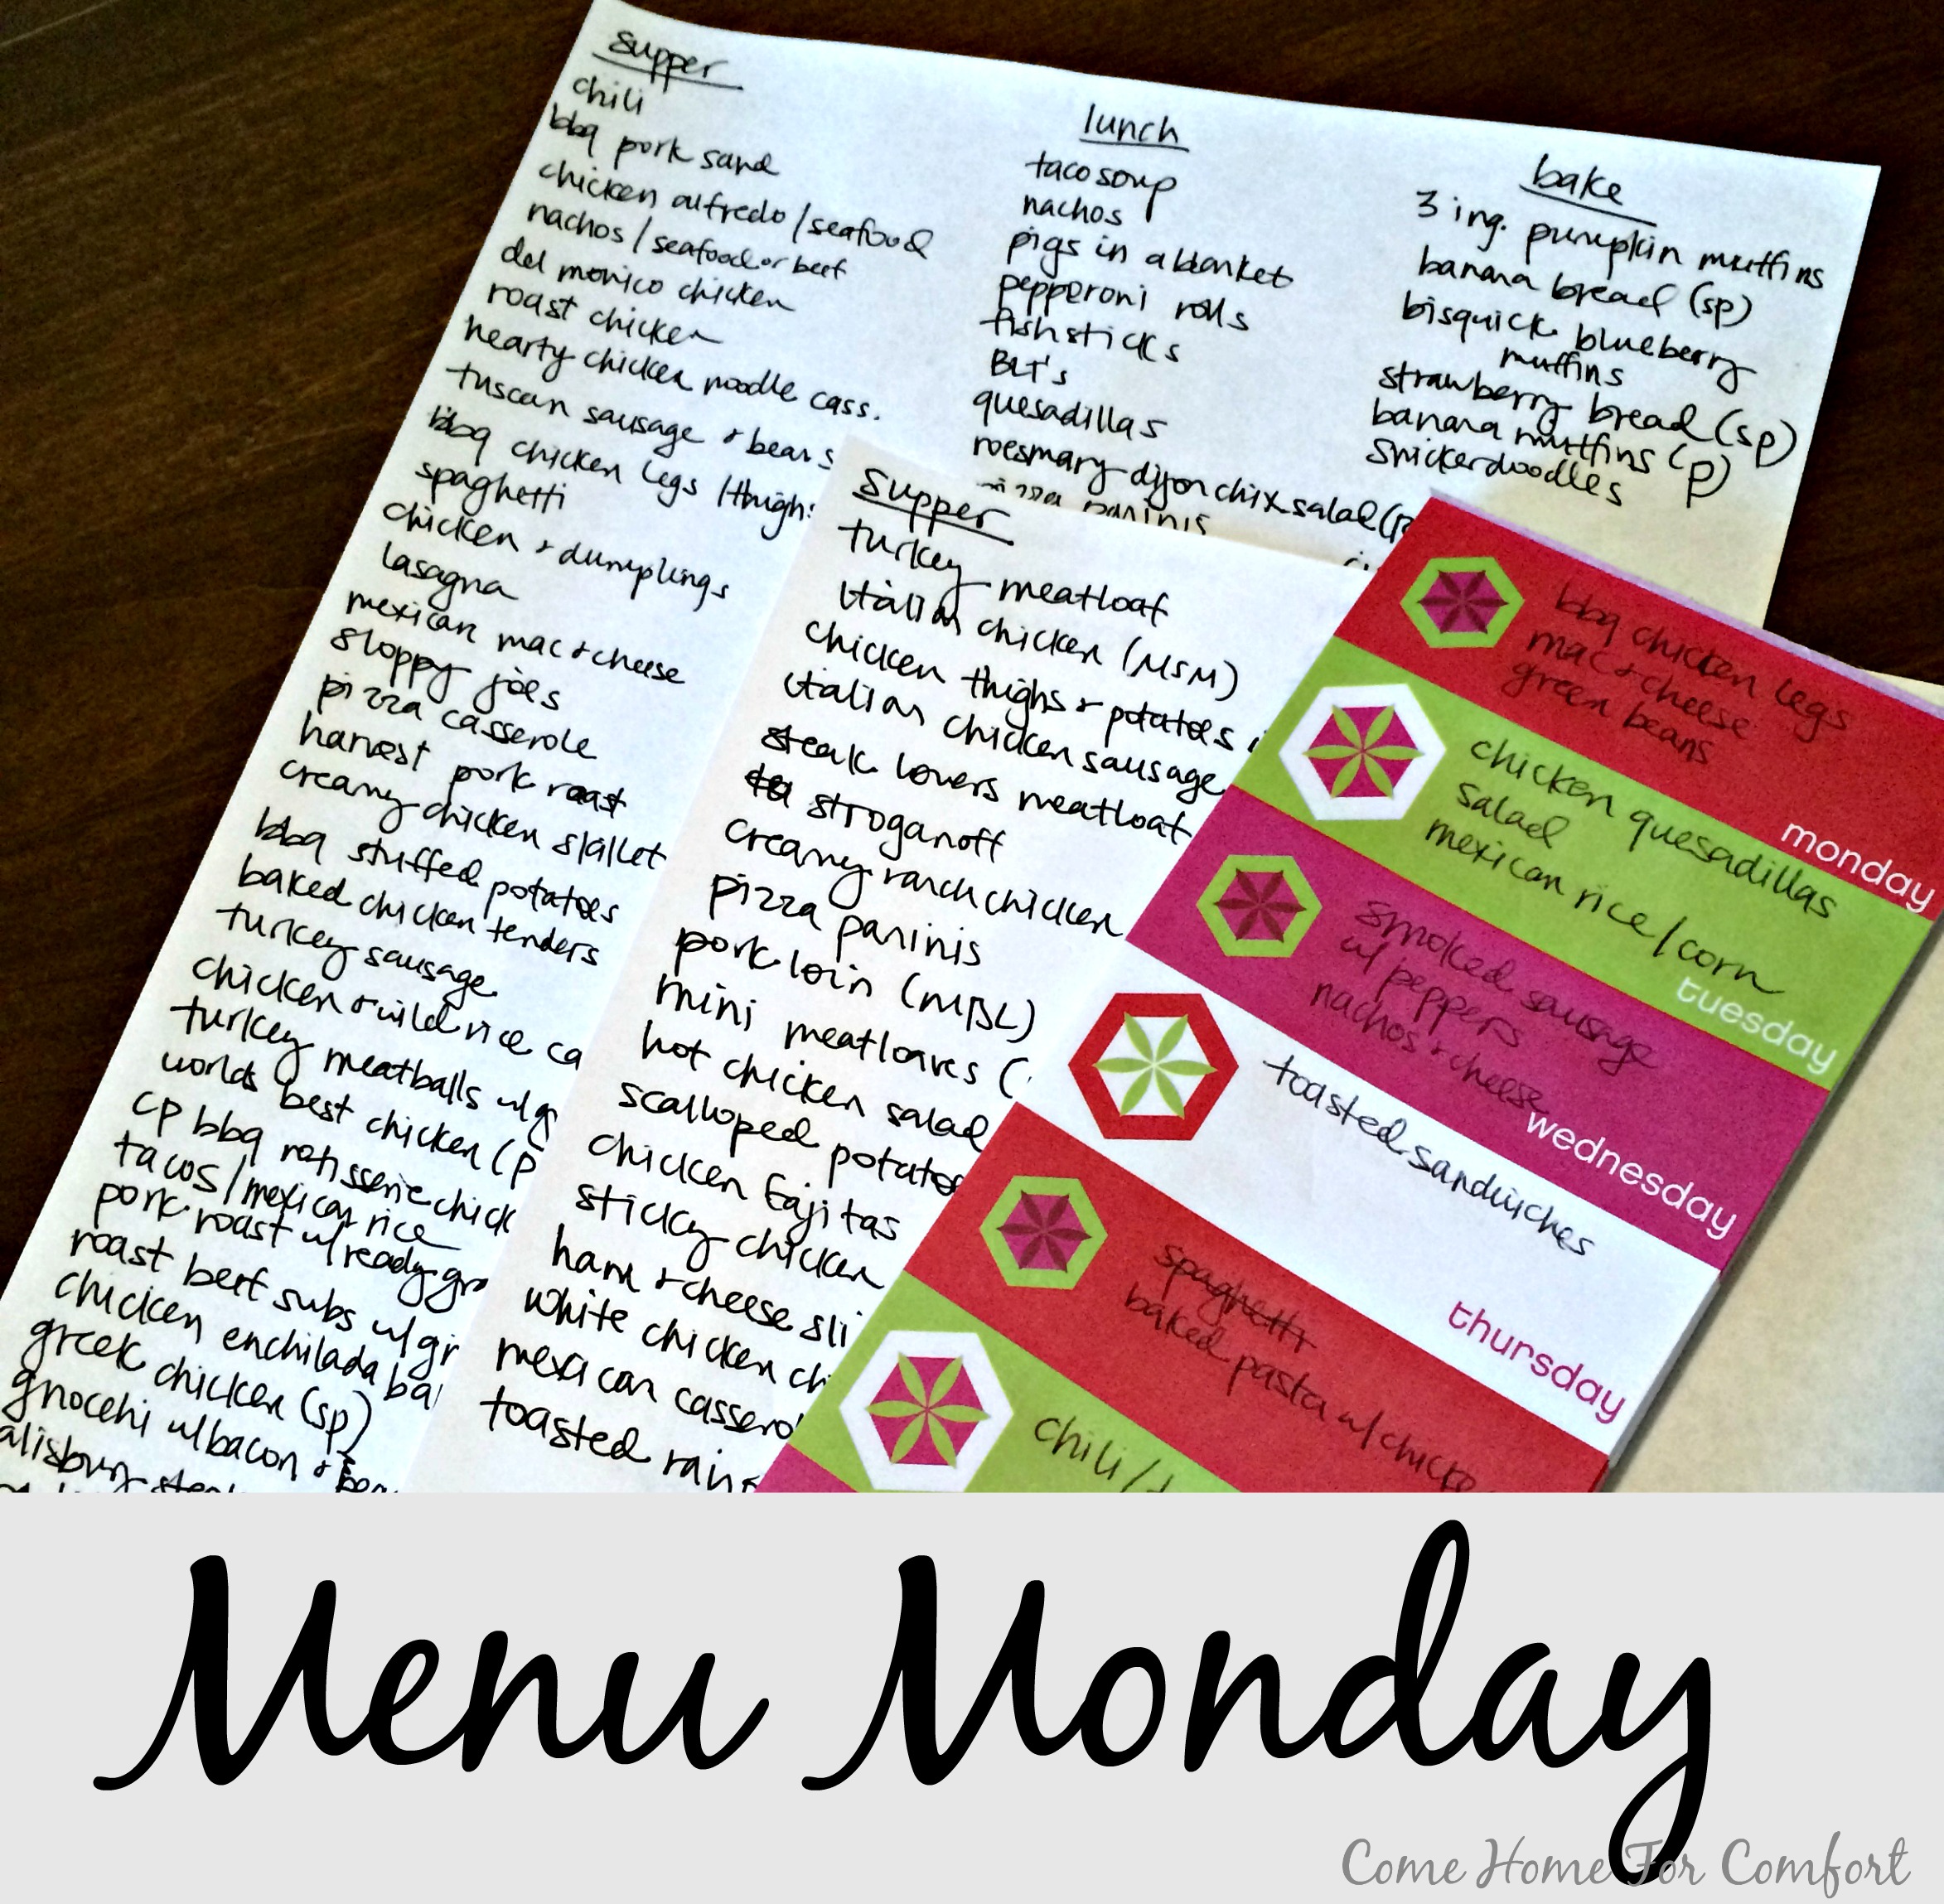 supper
chili
bbq pork sand
chicken alfredo / seafood
nachos / seafood or beef
del monico chicken
roast chicken
hearty chicken noodle cass.
tuscan sausage + beans
bbq chicken legs / thighs
spaghetti
chicken + dumplings
lasagna
mexican mac + cheese
sloppy joes
pizza casserole
harvest pork roast
creamy chicken skillet
bbq stuffed potatoes
baked chicken tenders
turkey sausage
chicken + wild rice ca
turkey meatballs w/ g
worlds best chicken (p
cp bbq rotisserie chick
tacos / mexican rice
pork roast w/ ready gr
roast beef subs w/ gr
chicken enchilada ba
greek chicken (sp)
gnocchi w/ bacon +
alisbury
lunch
taco soup
nachos
pigs in a blanket
pepperoni rolls
fish sticks
BLT's
quesadillas
roesmary dijon chix salad (p
pizza paninis
bake
3 ing. pumpkin muffins
banana bread (sp)
bisquick blueberry
muffins
strawberry bread (sp)
banana muffins (p)
snickerdoodles
supper
turkey meatloaf
italian chicken (MSM)
chicken thighs + potatoes
italian chicken sausage
steak lovers meatloaf
stroganoff
creamy ranch chicken
pizza paninis
pork loin (MBL)
mini meatloaves (
hot chicken salad
scalloped potatoe
chicken fajitas
sticky chicken
ham + cheese sli
white chicken ch
mexican cassero
toasted ravi
bbq chicken legs
mac + cheese
green beans
monday
chicken quesadillas
salad
mexican rice / corn
tuesday
smoked sausage
w/ peppers
nachos + cheese
wednesday
toasted sandwiches
thursday
spaghetti
baked pasta w/ chicke
chili /
Menu Monday
Come Home For Comfort